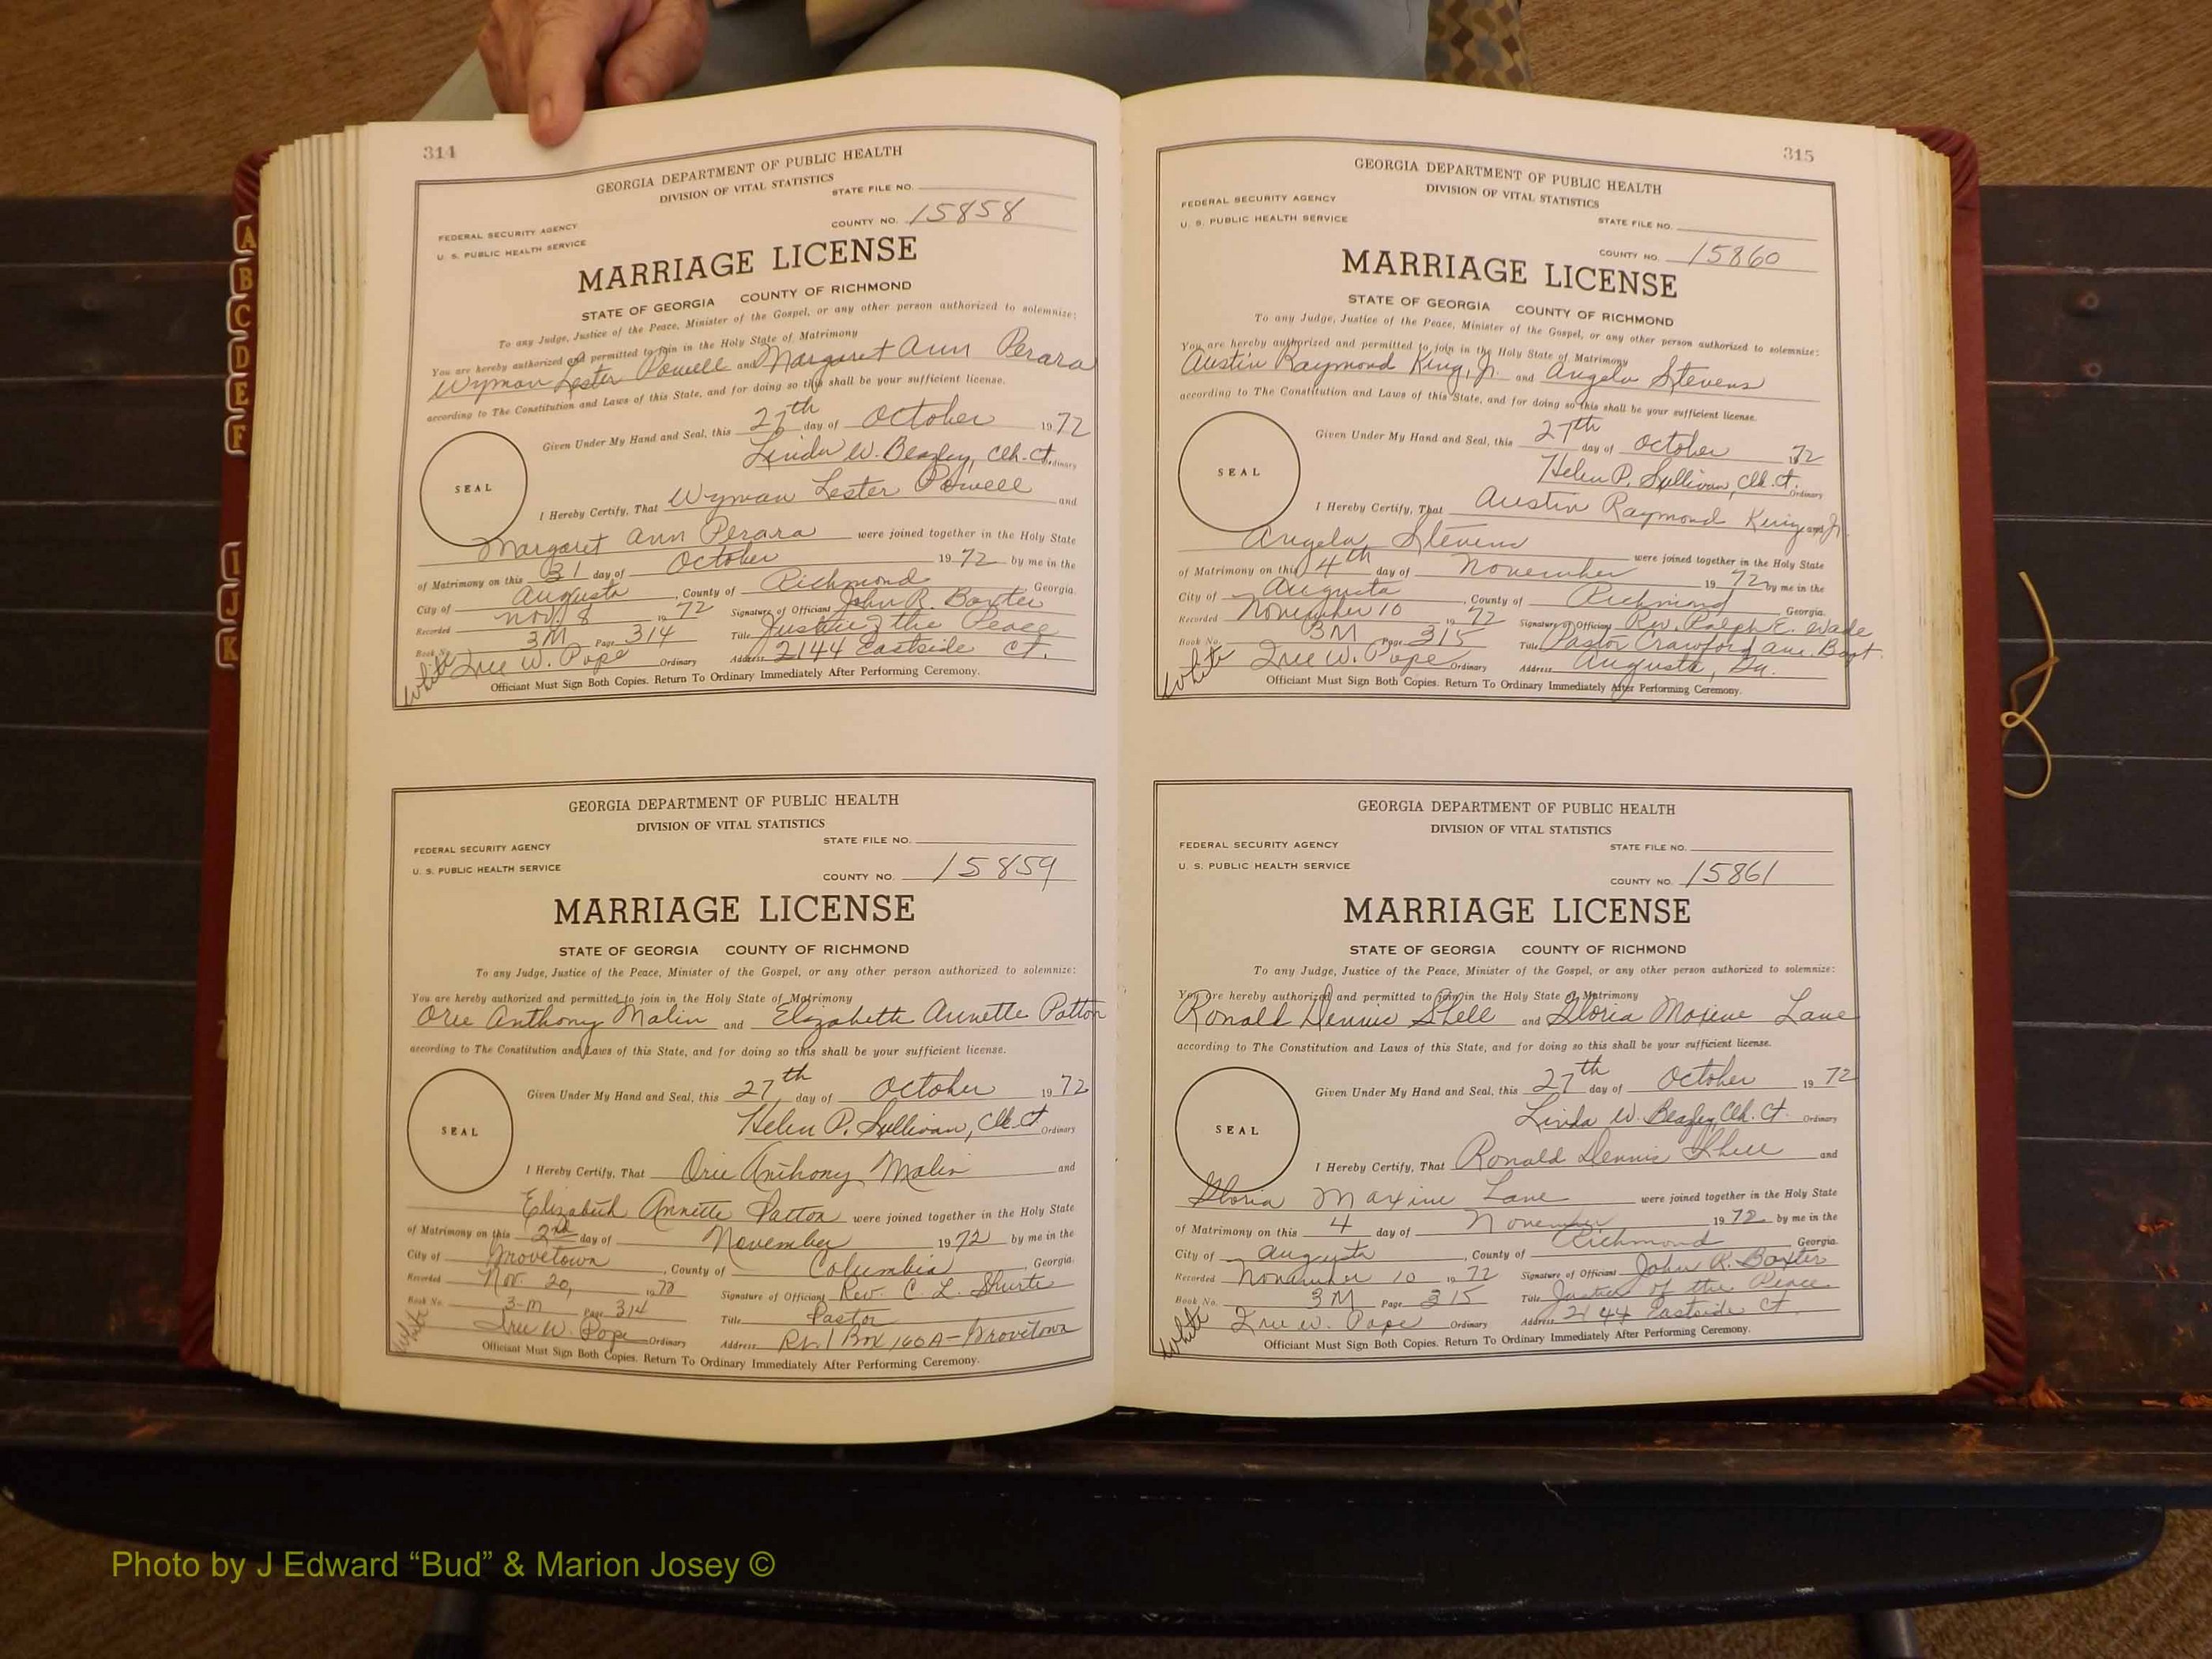 314
GEORGIA DEPARTMENT OF PUBLIC HEALTH
DIVISION OF VITAL STATISTICS
STATE FILE NO.
FEDERAL SECURITY AGENCY
U. S. PUBLIC HEALTH SERVICE
COUNTY NO. 15858
MARRIAGE LICENSE
STATE OF GEORGIA COUNTY OF RICHMOND
To any Judge, Justice of the Peace, Minister of the Gospel, or any other person authorized to solemnize:
You are hereby authorized and permitted to join in the Holy State of Matrimony
Wyman Lester Powell and Margaret Ann Perara
according to The Constitution and Laws of this State, and for doing so this shall be your sufficient license.
Given Under My Hand and Seal, this 27th day of October 1972
Linda W. Beazley, Clk. Ct. Ordinary
SEAL
I Hereby Certify, That Wyman Lester Powell and
Margaret Ann Perara were joined together in the Holy State
of Matrimony on this 31 day of October 1972 by me in the
City of Augusta, County of Richmond Georgia.
Recorded Nov. 8 1972 Signature of Officiant John R. Baxter
Book No. 3M Page 314 Title Justice of the Peace
White Ordinary Address 2144 Eastside Ct.
W. Pope
Officiant Must Sign Both Copies. Return To Ordinary Immediately After Performing Ceremony.
GEORGIA DEPARTMENT OF PUBLIC HEALTH
DIVISION OF VITAL STATISTICS
STATE FILE NO.
FEDERAL SECURITY AGENCY
U. S. PUBLIC HEALTH SERVICE
COUNTY NO. 15859
MARRIAGE LICENSE
STATE OF GEORGIA COUNTY OF RICHMOND
To any Judge, Justice of the Peace, Minister of the Gospel, or any other person authorized to solemnize:
You are hereby authorized and permitted to join in the Holy State of Matrimony
Orie Anthony Malin and Elizabeth Annette Patton
according to The Constitution and Laws of this State, and for doing so this shall be your sufficient license.
Given Under My Hand and Seal, this 27th day of October 1972
Helen P. Sullivan, Clk. Ct. Ordinary
SEAL
I Hereby Certify, That Orie Anthony Malin and
Elizabeth Annette Patton were joined together in the Holy State
of Matrimony on this 2nd day of November 1972 by me in the
City of Grovetown, County of Columbia Georgia.
Recorded Nov. 20, 1972 Signature of Officiant Rev. C. L.
Book No. 3-M Page 314 Title Pastor
White W. Pope Ordinary Address Rt. 1 Box 160A-Grovetown
Officiant Must Sign Both Copies. Return To Ordinary Immediately After Performing Ceremony.
315
GEORGIA DEPARTMENT OF PUBLIC HEALTH
DIVISION OF VITAL STATISTICS
FEDERAL SECURITY AGENCY
U. S. PUBLIC HEALTH SERVICE
STATE FILE NO.
COUNTY NO. 15860
MARRIAGE LICENSE
STATE OF GEORGIA COUNTY OF RICHMOND
To any Judge, Justice of the Peace, Minister of the Gospel, or any other person authorized to solemnize:
You are hereby authorized and permitted to join in the Holy State of Matrimony
Austin Raymond King, Jr. and Angela Stevens
according to The Constitution and Laws of this State, and for doing so this shall be your sufficient license.
Given Under My Hand and Seal, this 27th day of October 1972
Helen P. Sullivan, Clk. Ct. Ordinary
SEAL
I Hereby Certify, That Austin Raymond King Jr. and
Angela Stevens were joined together in the Holy State
of Matrimony on this 4th day of November 1972 by me in the
City of Augusta, County of Richmond Georgia.
Recorded November 10 1972 Signature of Officiant Rev. Ralph E. Wade
Book No. 3M Page 315 Title Pastor Crawford Ave. Bapt.
White W. Pope Ordinary Address Augusta, Ga.
Officiant Must Sign Both Copies. Return To Ordinary Immediately After Performing Ceremony.
GEORGIA DEPARTMENT OF PUBLIC HEALTH
DIVISION OF VITAL STATISTICS
FEDERAL SECURITY AGENCY
STATE FILE NO.
U. S. PUBLIC HEALTH SERVICE
COUNTY NO. 15861
MARRIAGE LICENSE
STATE OF GEORGIA COUNTY OF RICHMOND
To any Judge, Justice of the Peace, Minister of the Gospel, or any other person authorized to solemnize:
You are hereby authorized and permitted to join in the Holy State of Matrimony
Ronald Dennis Shell and Gloria Maxine Lane
according to The Constitution and Laws of this State, and for doing so this shall be your sufficient license.
Given Under My Hand and Seal, this 27th day of October 1972
Linda W. Beazley Clk. Ct. Ordinary
SEAL
I Hereby Certify, That Ronald Dennis Shell and
Gloria Maxine Lane were joined together in the Holy State
of Matrimony on this 4 day of November 1972 by me in the
City of Augusta, County of Richmond Georgia.
Recorded November 10 1972 Signature of Officiant John R. Baxter
Book No. 3M Page 315 Title Justice of the Peace
White W. Pope Ordinary Address 2144 Eastside Ct.
Officiant Must Sign Both Copies. Return To Ordinary Immediately After Performing Ceremony.
A
B
C
D
E
F
I
J
K
Photo by J Edward “Bud” & Marion Josey ©